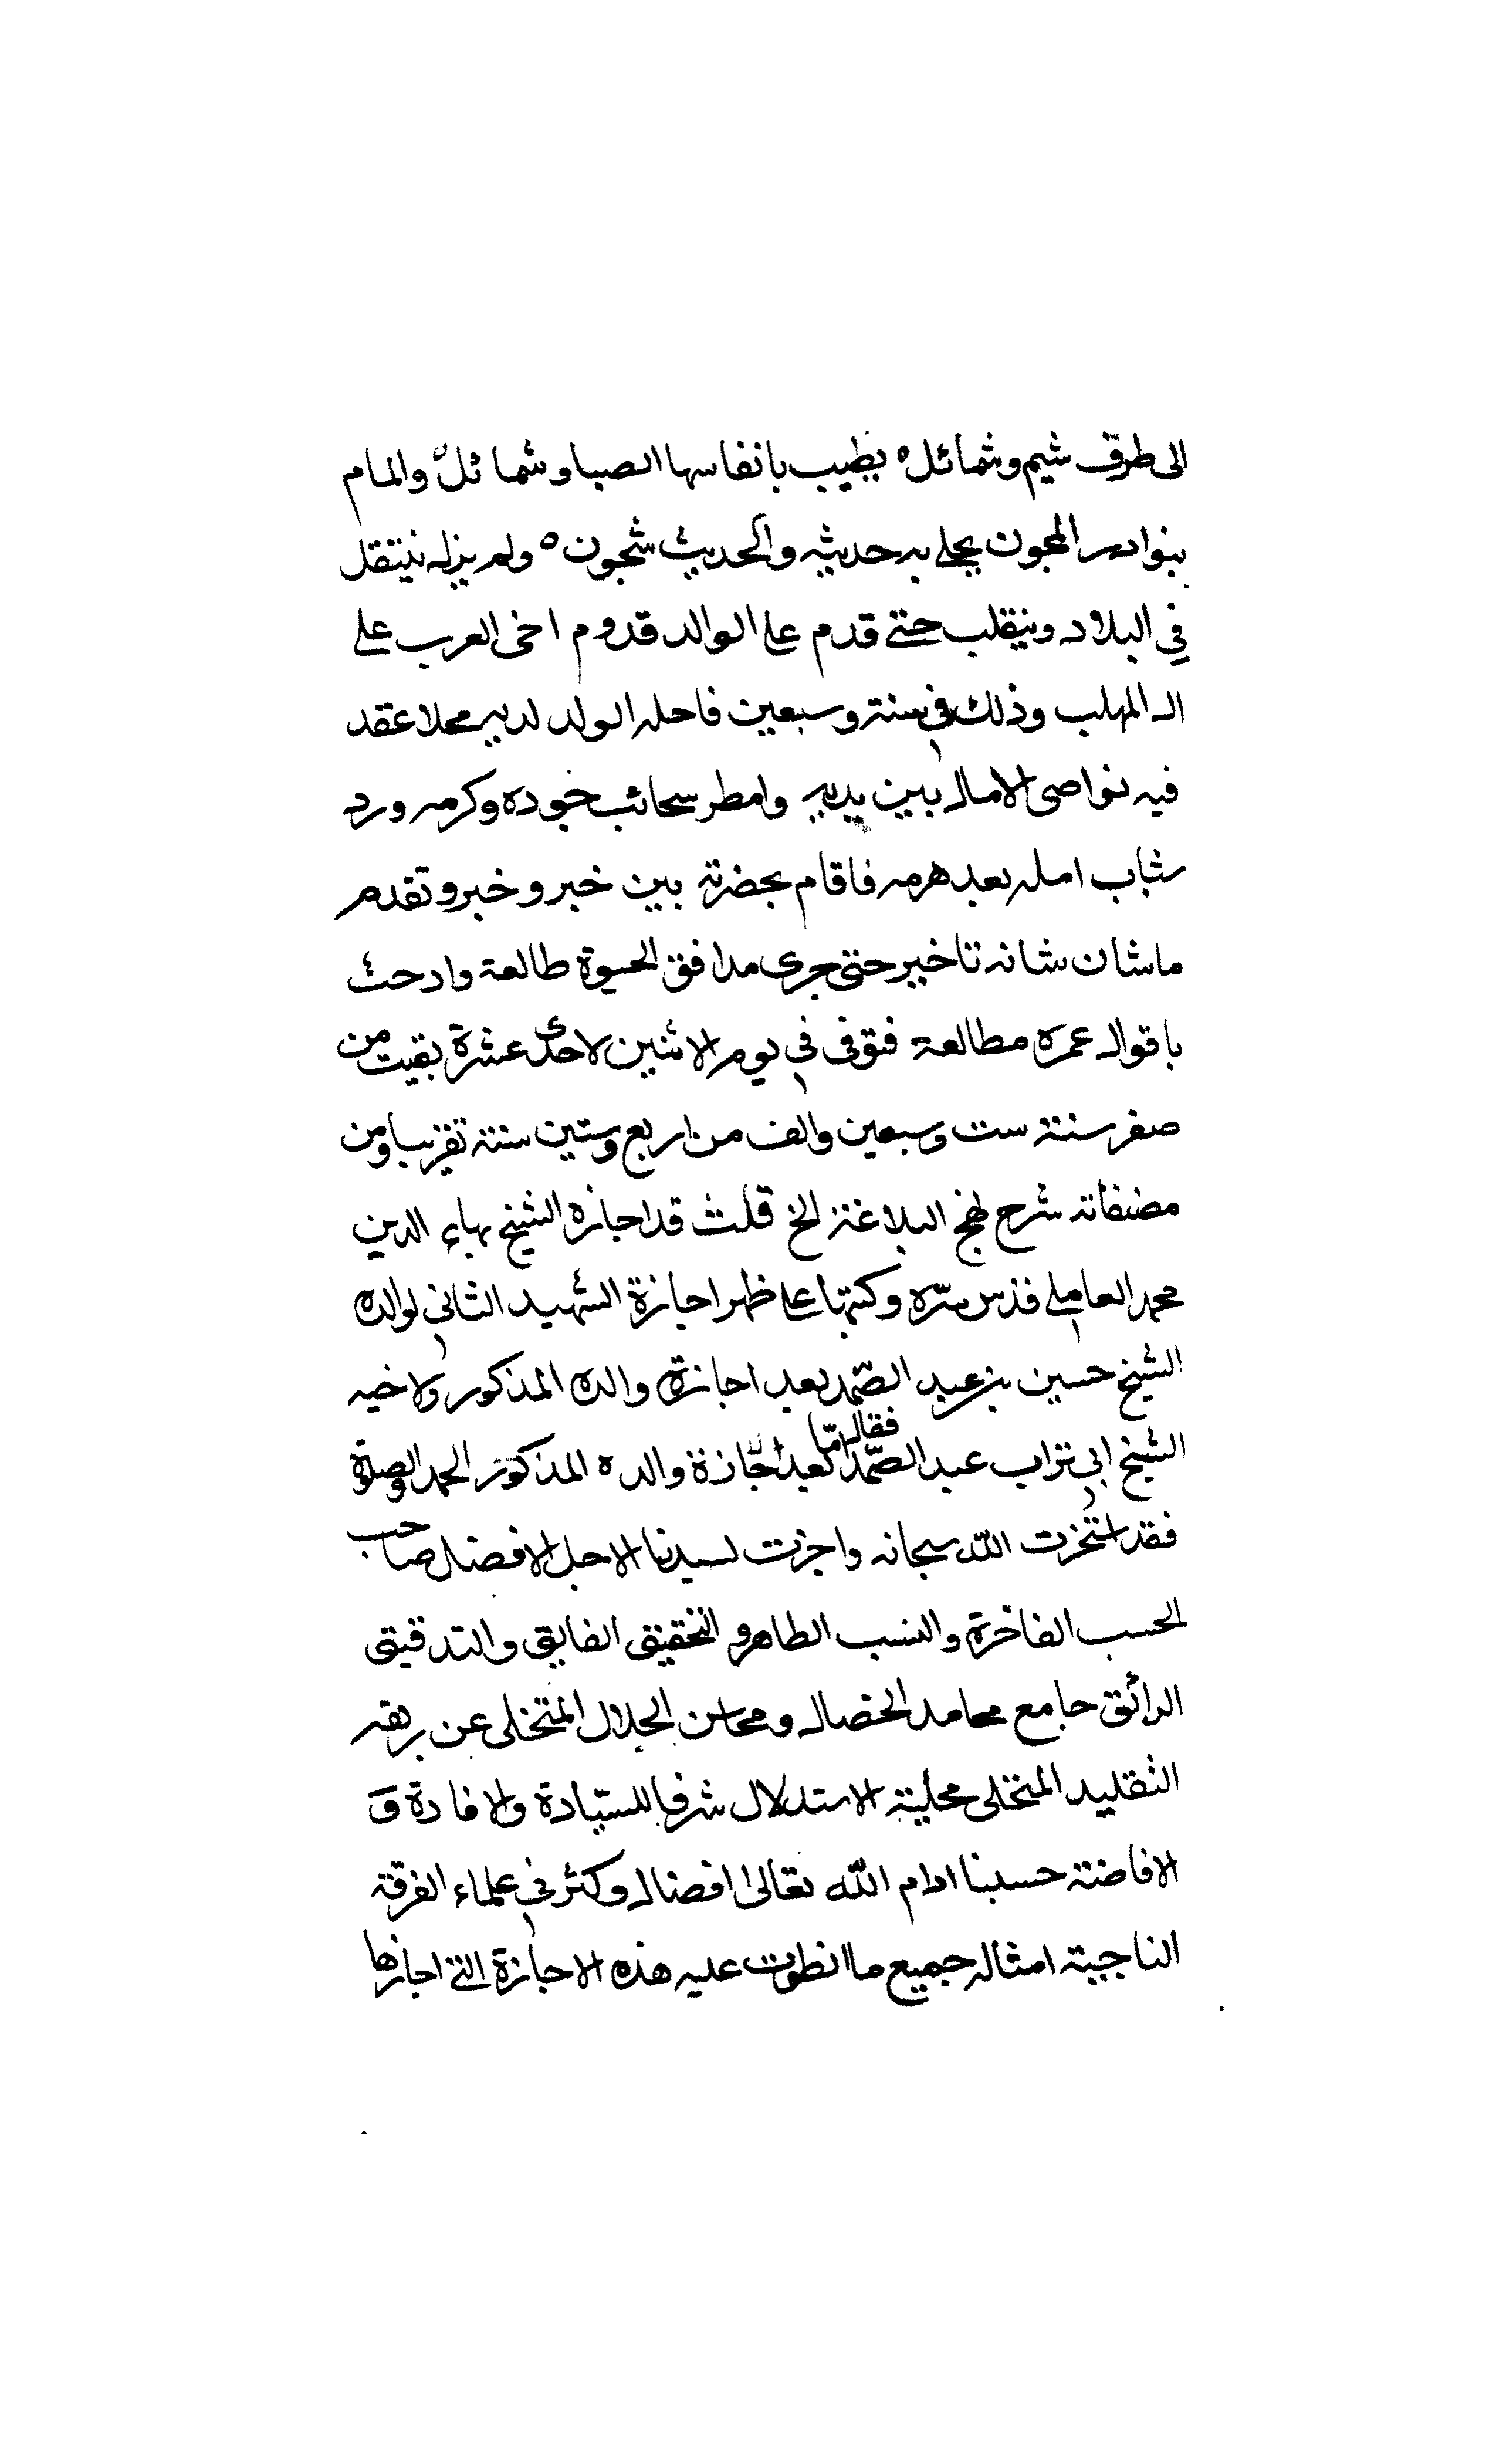 الى طرف شيم وشمائل ٥ يطيب بانفاسها الصبا وشمائل والمام
بنوادر المجون يحلي به حديثه والحديث شجون ٥ ولم يزل ينتقل
في البلاد وينقلب حتى قدم على الوالد قدوم اخى العرب على
ال المهلب وذلك في سنة وسبعين فاحله الولد لديه محلا عقد
فيه نواصى الامال بين يديه وامطر سحائب جوده وكرمه ورد
شباب امله بعد هرمه فاقام بحضرته بين خير وخير وتقدم
ماشان شانه تاخير حتى جرى مدافق الحيوة طالعة وادحت
باقوال عمره مطالعة فتوفى في يوم الاثنين لاحدى عشرة بقيت من
صفر سنة ست وسبعين والف من اربع وستين سنة تقريبا ومن
مصنفاته شرح نهج البلاغة الخ قلت قد اجازه الشيخ بهاء الدين
محمد العاملي قدس سره وكتبها على ظهر اجازة الشهيد الثاني لوالده
الشيخ حسين بن عبد الصمد بعد اجازة والده المذكور ولاخيه
الشيخ ابي تراب عبد الصمد بعد اجازة والده المذكور فقال اما الحمد والصلوة
فقد استخرت الله سبحانه واجزت لسيدنا الاجل الافضل صاحب
الحسب الفاخرة والنسب الطاهر و التحقيق الفايق والتدقيق
الرائق جامع محامد الخصال ومحاسن الجلال المتخلى عن برهة
التقليد المتحلى محلية الاستدلال شرفا للسيادة والافادة و
الافاضة حسبنا ادام الله تعالى افضاله وكثر في علماء الفرقة
الناجية امثاله جميع ما انطوت عليه هذه الاجازة التي اجازها